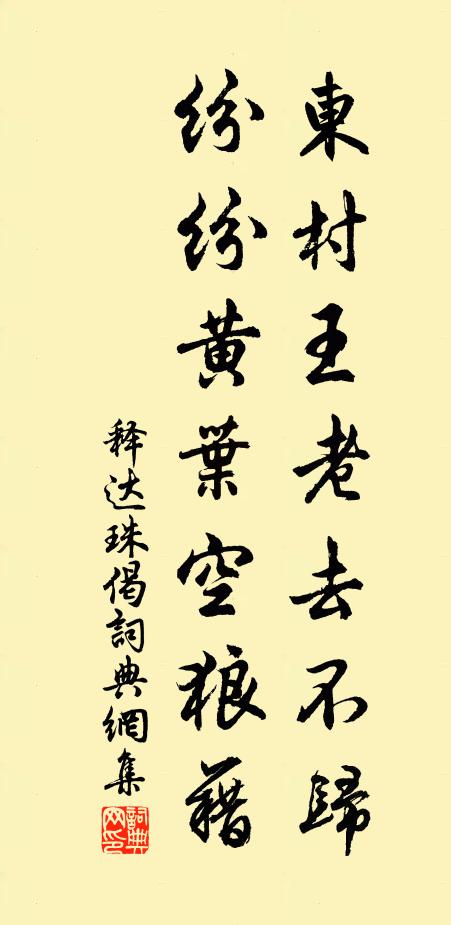 東村王老去不歸
紛紛黄葉空狼藉
释达珠偈詞典網集
詞典网印